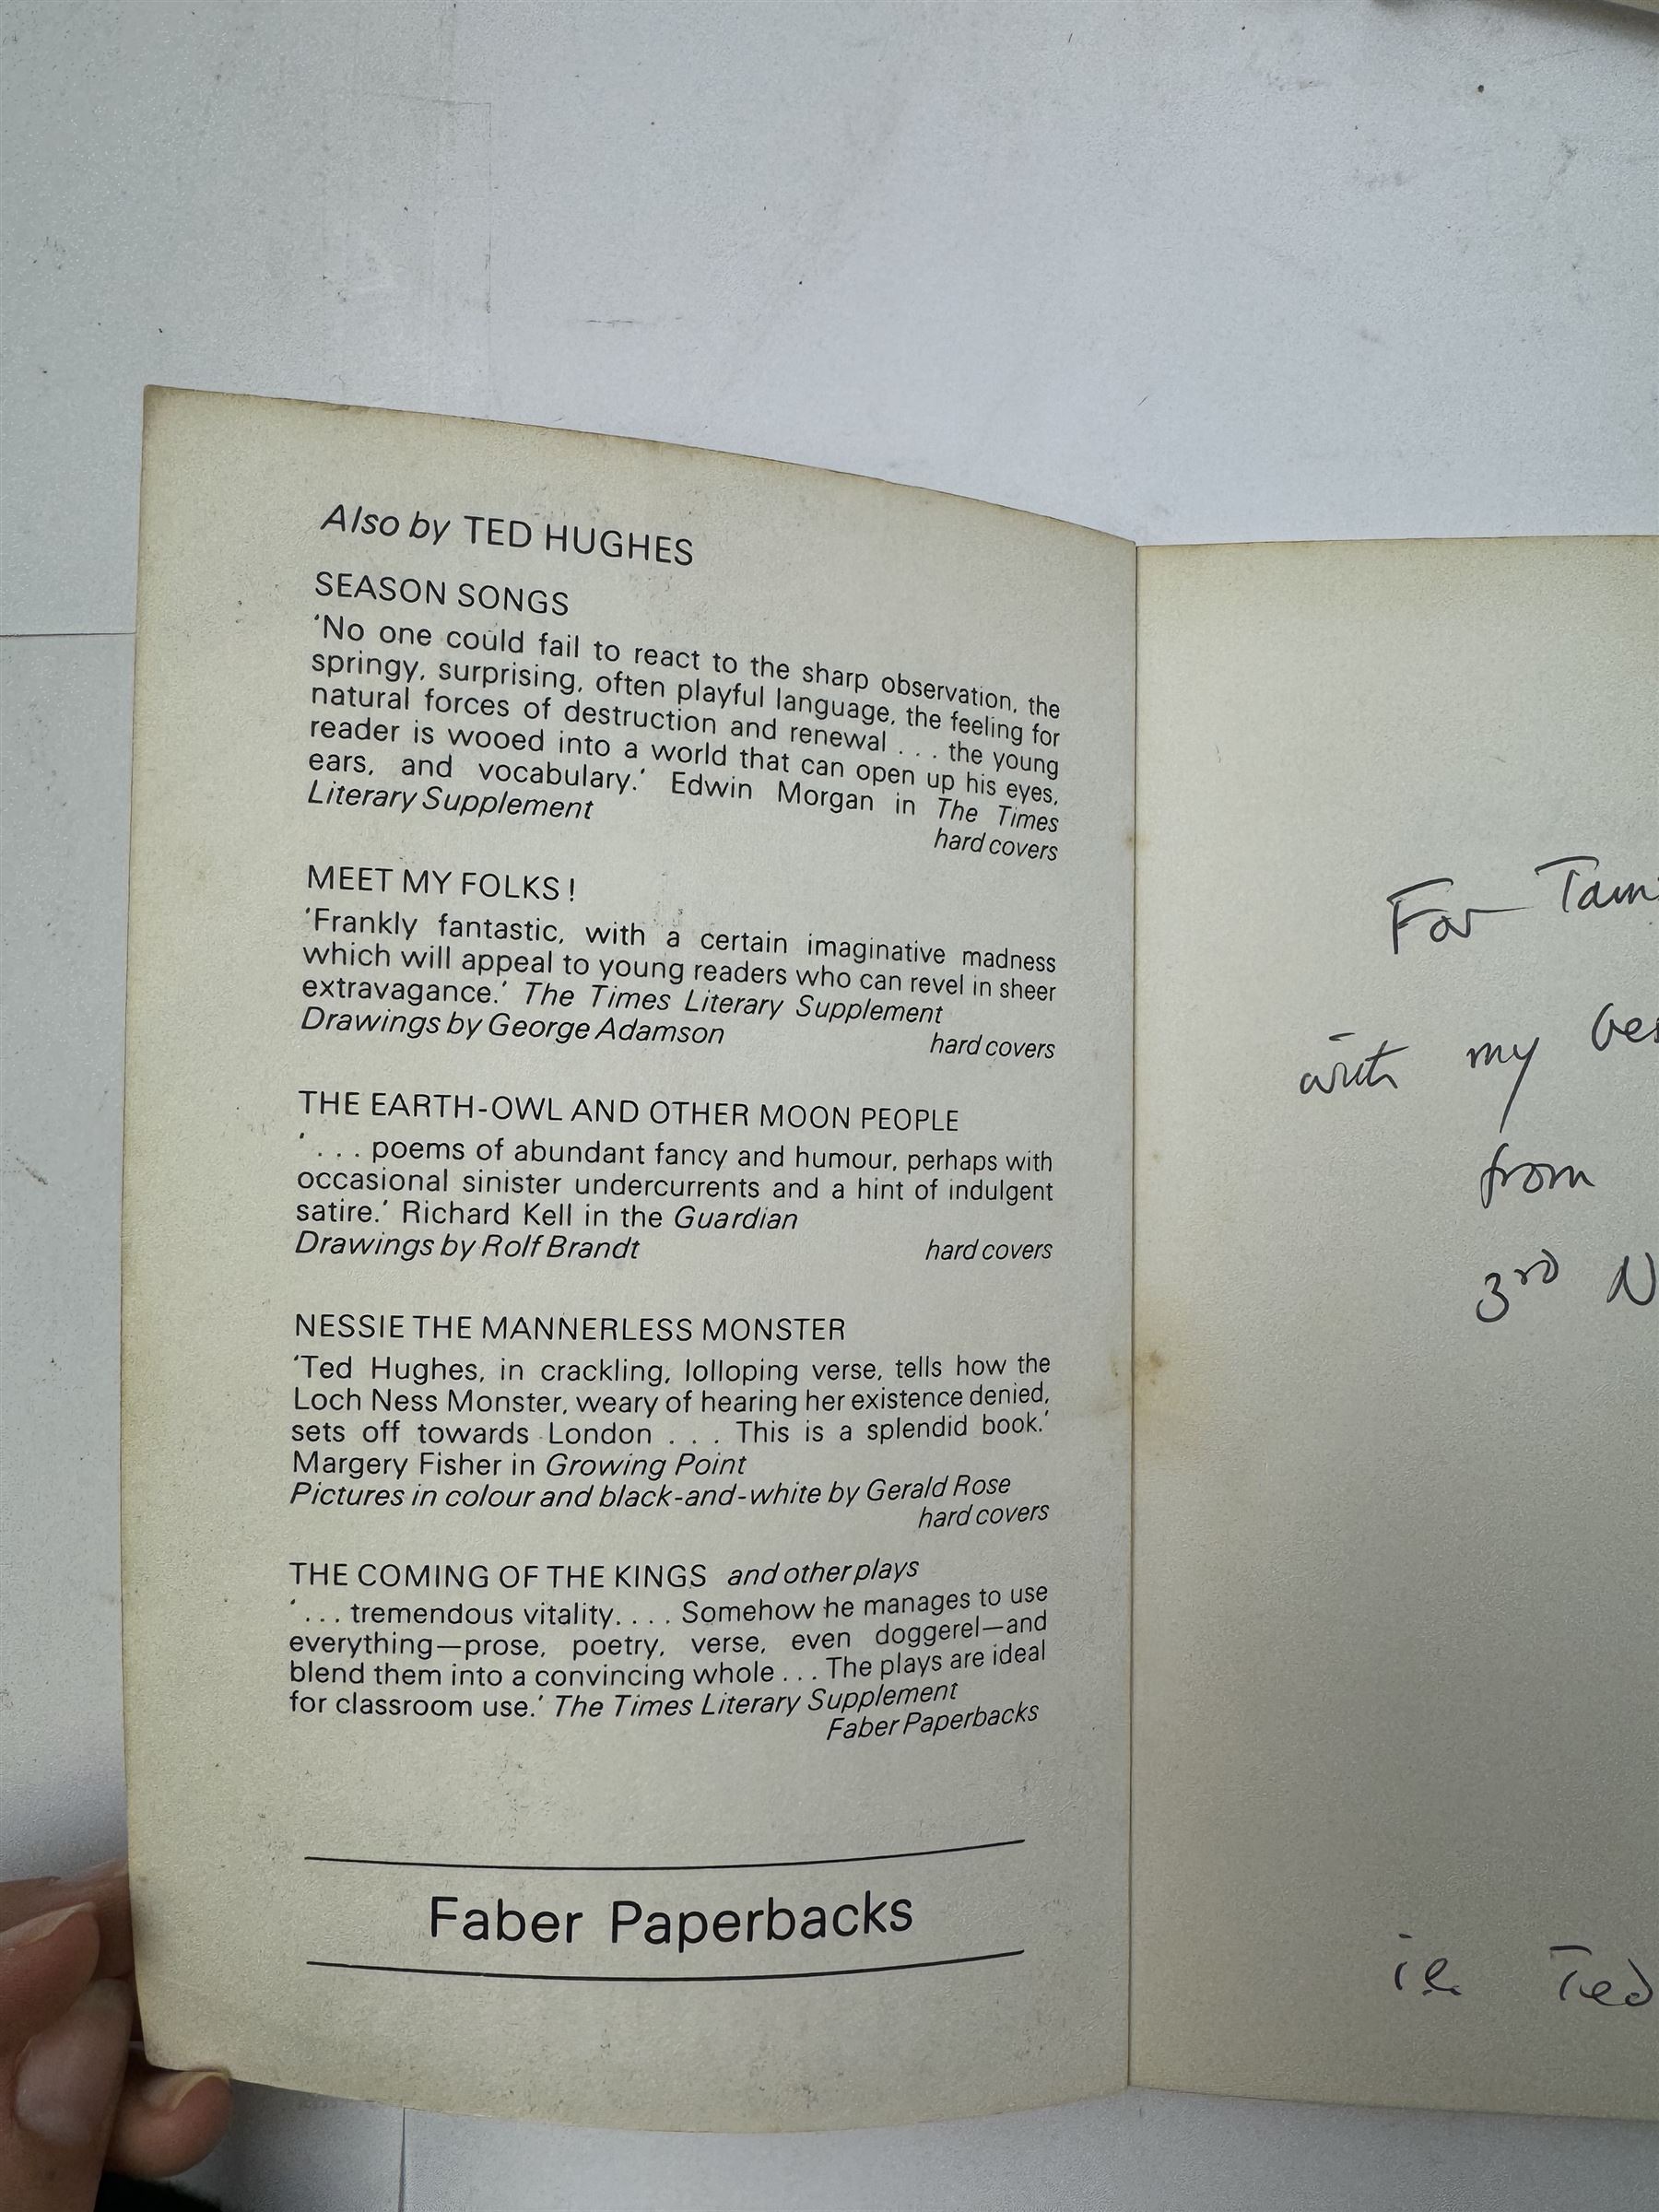 Also by TED HUGHES
SEASON SONGS
'No one could fail to react to the sharp observation, the
springy, surprising, often playful language, the feeling for
natural forces of destruction and renewal . . . the young
reader is wooed into a world that can open up his eyes,
ears, and vocabulary.' Edwin Morgan in The Times
Literary Supplement
hard covers
MEET MY FOLKS!
'Frankly fantastic, with a certain imaginative madness
which will appeal to young readers who can revel in sheer
extravagance.' The Times Literary Supplement
Drawings by George Adamson hard covers
THE EARTH-OWL AND OTHER MOON PEOPLE
' . . . poems of abundant fancy and humour, perhaps with
occasional sinister undercurrents and a hint of indulgent
satire.' Richard Kell in the Guardian
Drawings by Rolf Brandt hard covers
NESSIE THE MANNERLESS MONSTER
'Ted Hughes, in crackling, lolloping verse, tells how the
Loch Ness Monster, weary of hearing her existence denied,
sets off towards London . . . This is a splendid book.'
Margery Fisher in Growing Point
Pictures in colour and black-and-white by Gerald Rose
hard covers
THE COMING OF THE KINGS and other plays
' . . . tremendous vitality. . . . Somehow he manages to use
everything—prose, poetry, verse, even doggerel—and
blend them into a convincing whole . . . The plays are ideal
for classroom use.' The Times Literary Supplement
Faber Paperbacks
Faber Paperbacks
For
with my
from
3rd N
ie Ted